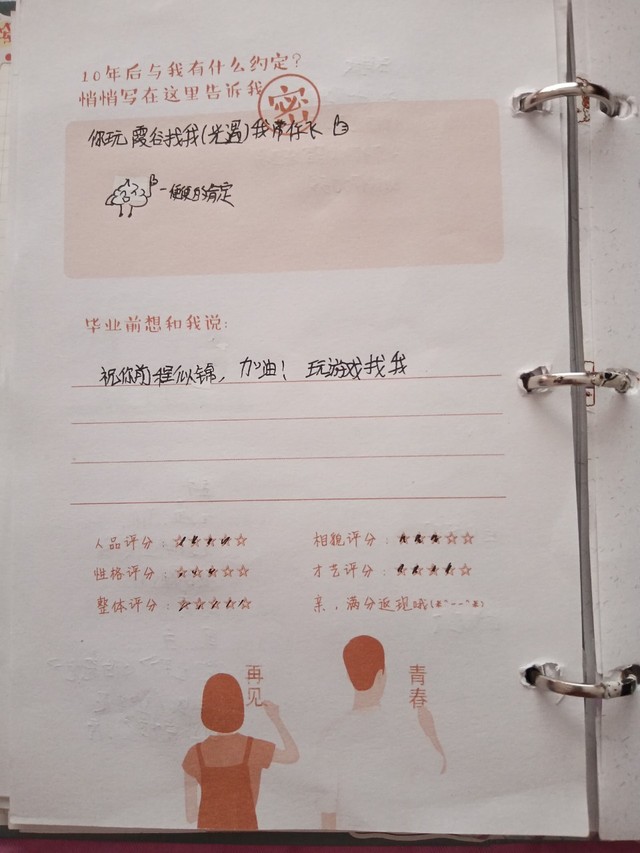 10年后与我有什么约定?
悄悄写在这里告诉我
密
你玩霞谷找我(光遇)我带你飞
毕业前想和我说:
祝你前程似锦,加油! 玩游戏找我
人品评分:★★★★☆ 相貌评分:★★★☆☆
性格评分:★★★☆☆ 才艺评分:★★★★☆
整体评分:★★★★★ 亲,满分返现哦
再见
青春